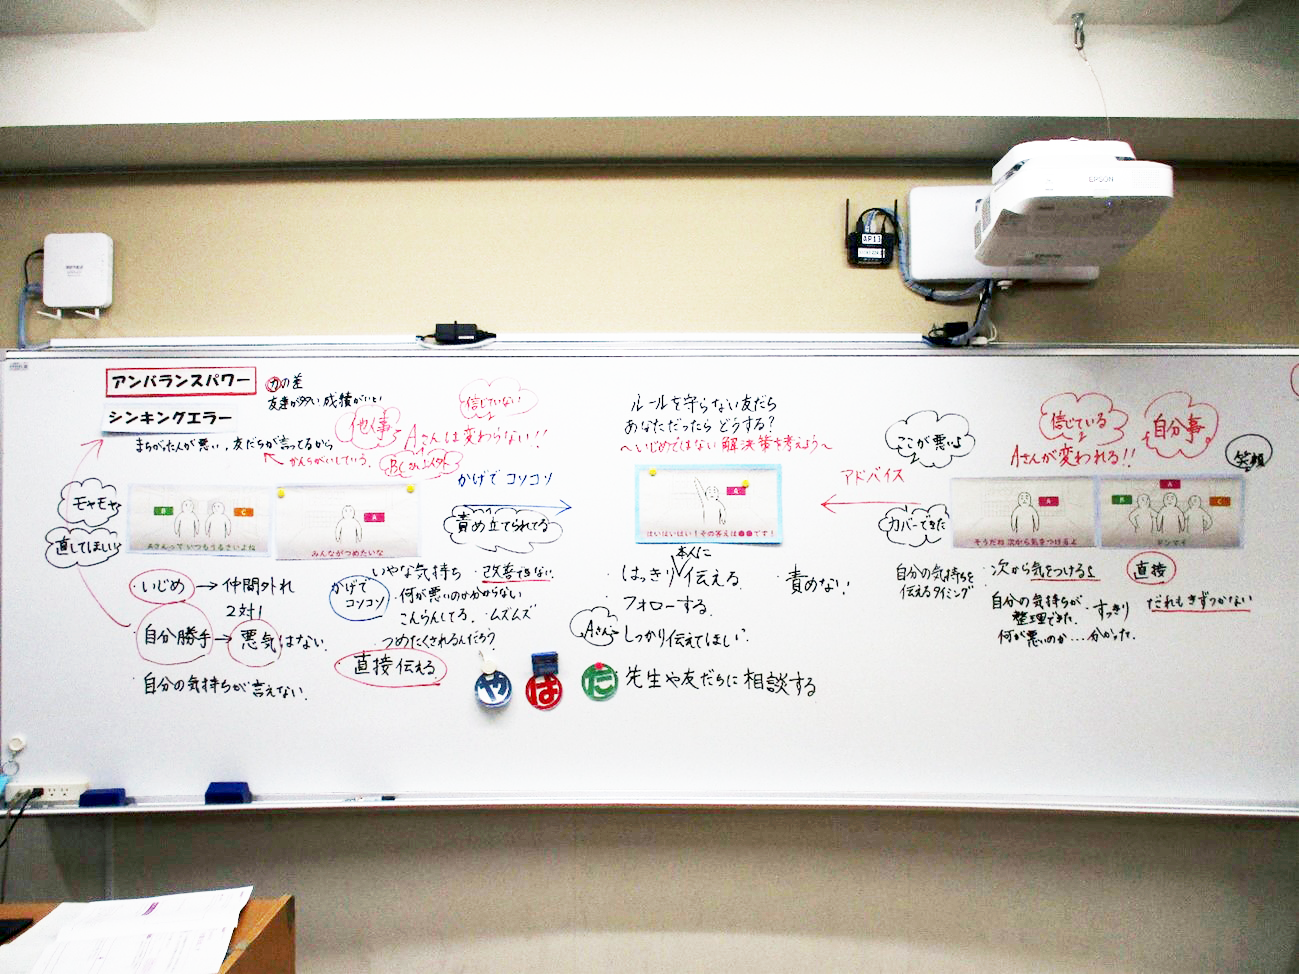 EPSON
AP13
アンバランスパワー
力の差
友達が多い 成績がいい
シンキングエラー
まちがったんが悪い,友だちが言ってるから
かんちがいしている.
他人事
信じていない
Aさんは変わらない!!
モヤモヤ
直してほしい
B
C
Aさんっていつもうるさいよね
A
みんながつめたいな
かげで コソコソ
責め立てられてる
・いじめ→仲間外れ
2対1
・自分勝手→悪気はない.
・自分の気持ちが言えない.
かげで
コソコソ
いやな気持ち ・改善できない.
・何が悪いのか分からない
こんらんしてる. ・ムズムズ
つめたくされるんだろう?
・直接伝える.
や
は
た
ルールを守らない友だち
あなただったら どうする?
〜いじめではない 解決策を考えよう〜
A
はいはいはい!その答えは●●です!
本人に
・はっきり伝える
・責めない!
・フォローする.
Aさん
しっかり伝えてほしい.
・先生や友だちに相談する
アドバイス
ここが悪いよ
カバーできた
自分の気持ちを
伝えるタイミング
信じている
Aさんが変われる!!
自分事
笑顔
A
そうだね 次から気をつけるよ
B
A
C
ドンマイ
・次から気をつけるよ
自分の気持ちが
整理できた.
・すっきり
何が悪いのか…分かった.
直接
だれもきずつかない